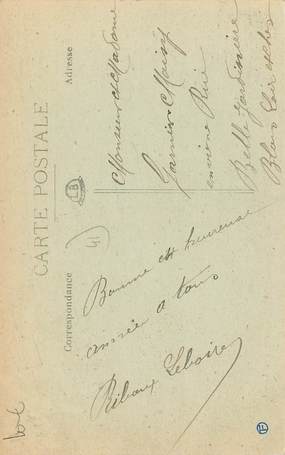 CARTE POSTALE
Correspondance
Adresse
LB
41
Bonne et heureuse
année a tous
Ribaux Leboire
Monsieur et Madame
Garnier Moisy
ancienne Rue
Belle Jardinière
Blois Loir et Cher